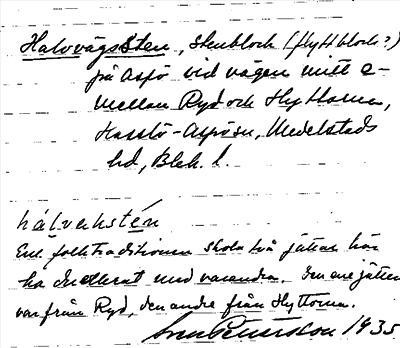 Halvvägssten, stenblock (flyttblock?)
på Aspö vid vägen mitt e-
mellan Ryd och Hyttorna,
Hasslö-Aspösn, Medelstads
hd, Blek. l.
hálvehstén
Enl. folktraditionen skola två jättar här
ha duellerat med varandra. Den ene jätten
var från Ryd, den andre från Hyttorna.
Sven Petersson 1935